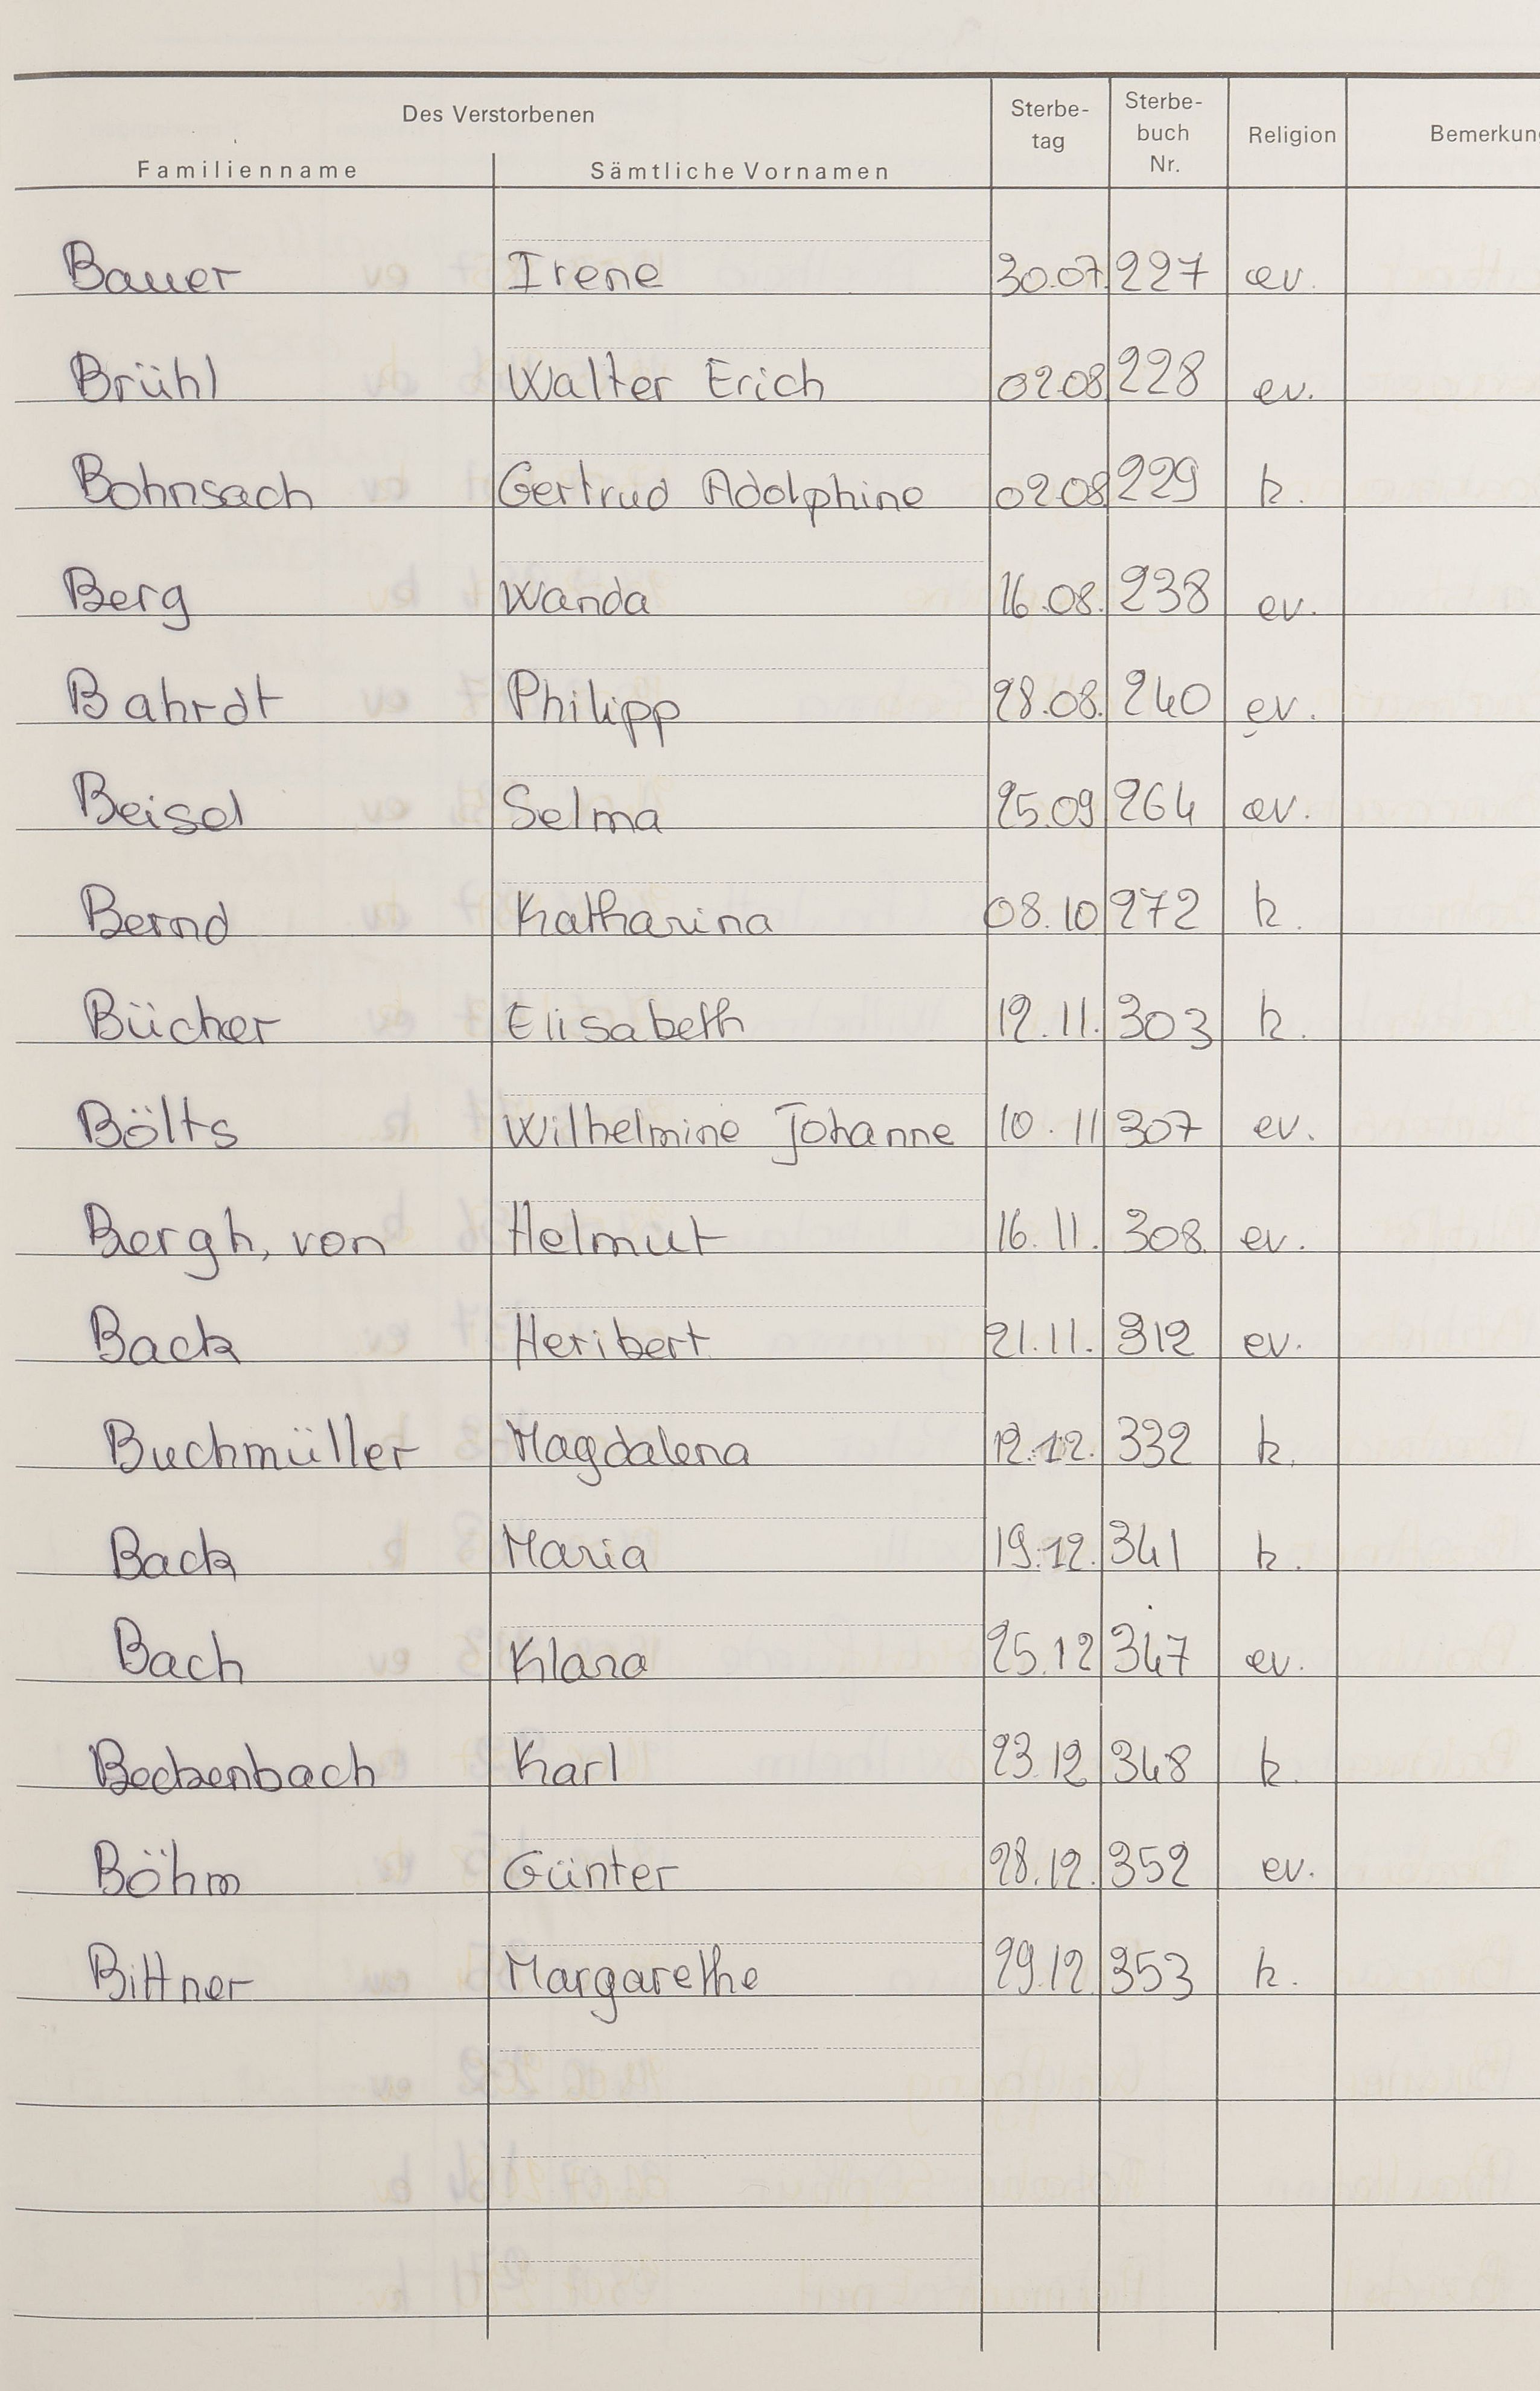 Des Verstorbenen
Familienname Sämtliche Vornamen Sterbe-tag Sterbe-buch Nr. Religion
Bauer Irene 30.07. 227 ev.
Brühl Walter Erich 02.08. 228 ev.
Bohnsach Gertrud Adolphine 02.08 229 k.
Berg Wanda 16.08. 238 ev.
Bahrdt Philipp 28.08. 240 ev.
Beisel Selma 25.09 264 ev.
Bernd Katharina 08.10 272 k.
Bücher Elisabeth 12.11. 303 k.
Bölts Wilhelmine Johanne 10.11 307 ev.
Bergh, von Helmut 16.11. 308. ev.
Back Heribert 21.11. 312 ev.
Buchmüller Magdalena 12.12. 332 k.
Back Maria 19.12. 341 k.
Bach Klara 25.12 347 ev.
Beckenbach Karl 23.12 348 k.
Böhm Günter 28.12. 352 ev.
Bittner Margarethe 29.12 353 k.